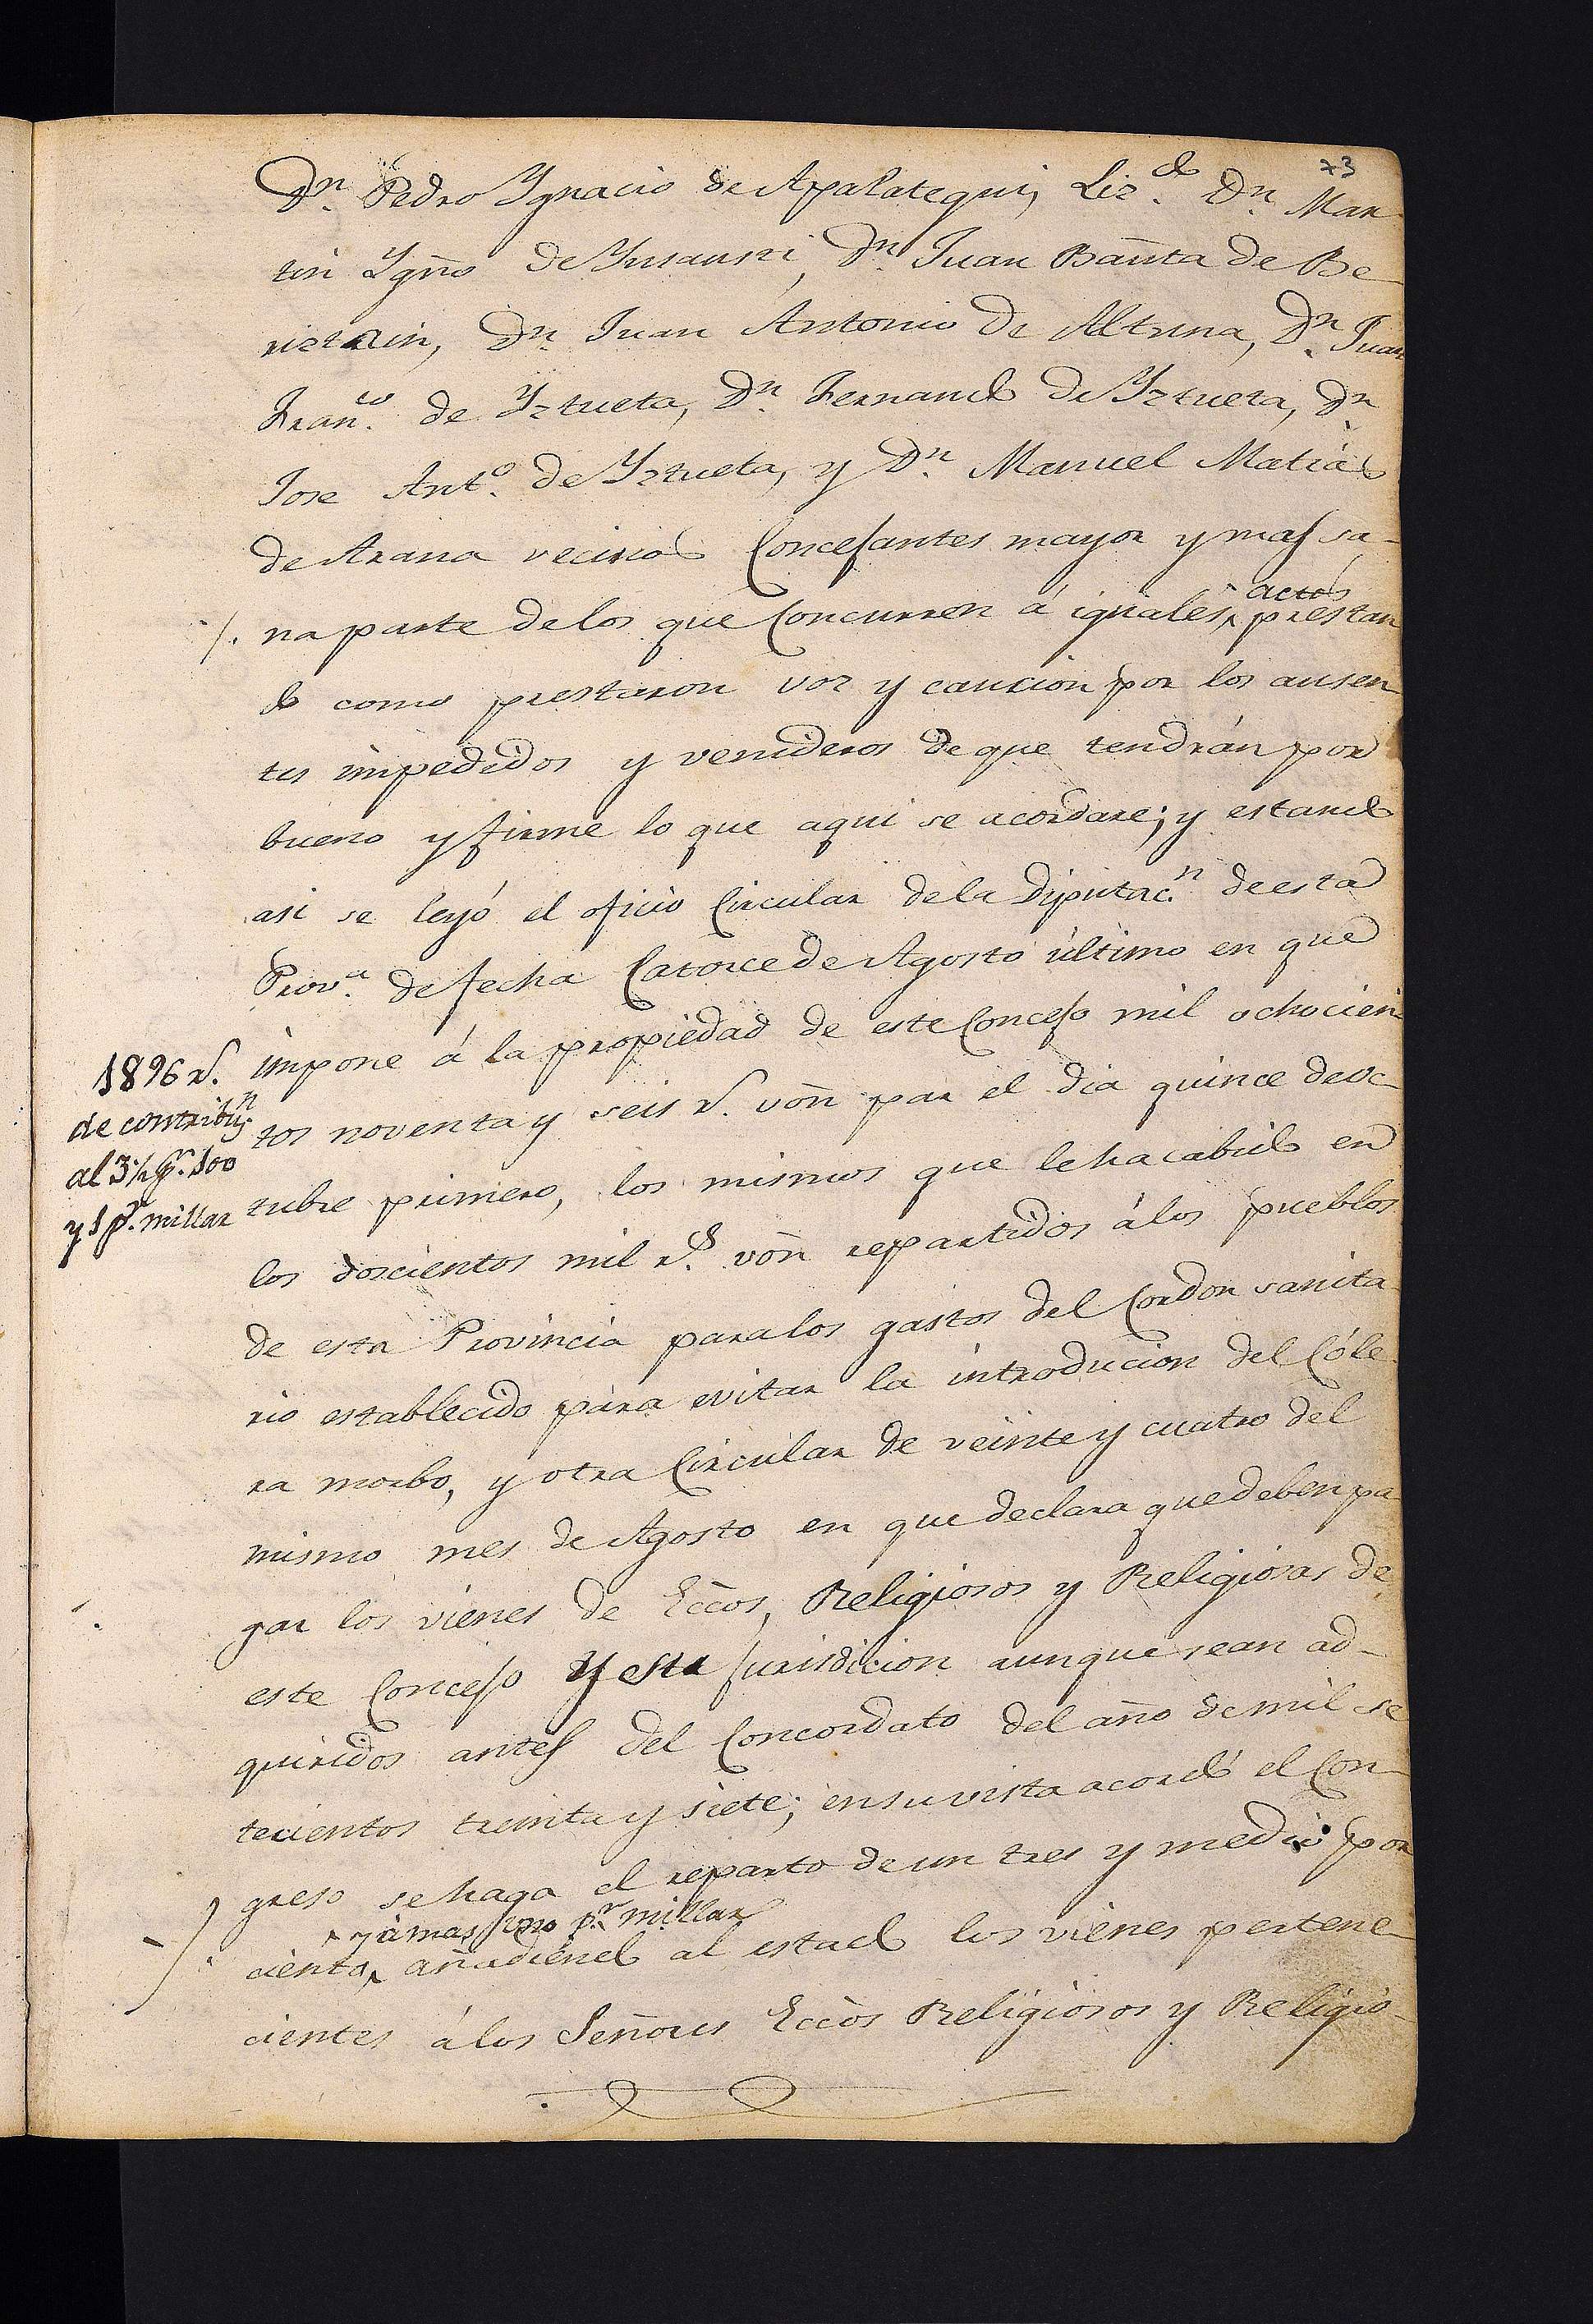 73
Dn. Pedro Ygnacio de Apalategui, Liz.do Dn. Mar
tin Ygño de Ynsausti, Dn. Juan Bañta de Be
riztain, Dn. Juan Antonio de Altuna, Dn. Juan
Fran.co de Yztueta, Dn. Fernando de Yztueta, Dn.
Jose Ant.o de Yztueta, y Dn. Manuel Matias
de Arana vecinos Concejantes mayor y mas sa-
actos
na parte de los que Concurren á iguales prestan
do como prestaron voz y caucion por los ausen
tes impedidos y venideros de que tendrán por
bueno y firme lo que aqui se acordare; y estando
asi se leyó el oficio Circular de la Diputac.n de esta
Prov.a de fecha Catorce de Agosto último en que
impone á la propiedad de este Concejo mil ochocien
tos noventa y seis r.s von par el dia quince de Oc-
tubre primero, los mismos que le ha cabido en
los doscientos mil r.s von repartidos á los pueblos
de esta Provincia para los gastos del Cordon sanita
rio establecido para evitar la introducion del Cóle
ra morbo, y otra Circular de veinte y cuatro del
mismo mes de Agosto en que declara que deben pa
gar los vienes de Eccos, Religiosos y Religiosas de
este Concejo y esta jurisdicion aunque sean ad-
quiridos antes del Concordato del año de mil se
tecientos treinta y siete; en su vista acordó el Con
greso se haga el reparto de un tres y medio por
y á mas uno p.r millar
ciento, añadiendo al estado los vienes pertene
cientes á los Señores Eccos Religiosos y Religio-
1896 r.s
de contribu.n
al 3½ p.r 100
y 1 p.r millar